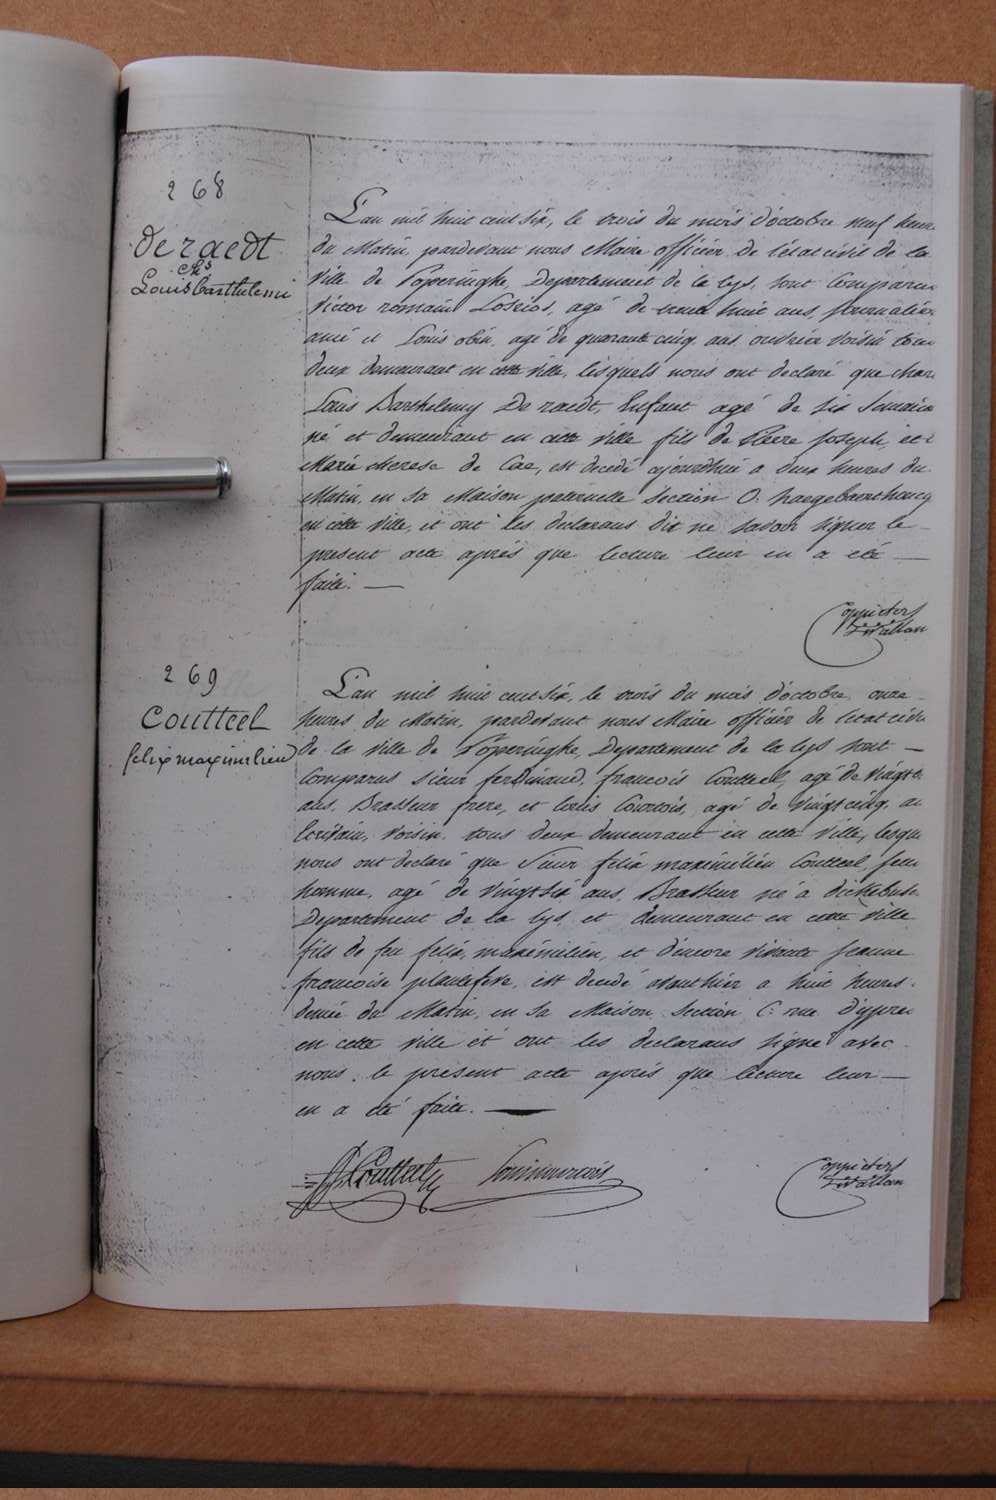 268
De raedt
chs
Louis Barthelemi
L'an mil huit cent six, le trois du mois d'octobre neuf heur
du Matin, pardevant nous Maire officier de l'état civil de la
Ville de Poperinghe, Departement de la Lys, sont Comparu
Victor romain agé de trente huit ans, journalier
ami et Louis obin, agé de quarante cinq ans ouvrier voisin tou
deux demeurant en cette ville, lesquels nous ont declaré que char
Louis Barthelemy De raedt, Enfant agé de six Semaine
né et demeurant en cette ville fils de Pierre Joseph, et
Marie therese de Cae, est decedé ajourdhui a deux heures du
Matin, en sa Maison paternelle Section O:
en cette ville, et ont les declarans dit ne savoir signer le
present acte après que lecture leur en a été
faite.
269
Coutteel
felix maximilien
L'an mil huit cent six, le trois du mois d'octobre, onze
heures du Matin, pardevant nous Maire officier de l'etat civil
de la ville de Poperinghe, Departement de la Lys sont
Comparus Sieur ferdinand, francois Coutteel, agé de Vingt
ans, Brasseur frere, et Louis Courtois, agé de Vingt cinq, an
Ecrivain, Voisin, tous deux demeurant en cette Ville, lesqu
nous ont declaré que Sieur felix maximilien Coutteel jeun
homme, agé de Vingt six ans, Brasseur né à dickebus
Departement de la Lys, et demeurant en cette Ville
fils de feu felix, maximilien, et d'encore Vivante Jeanne
francoise plantefeve, est decedé avant hier a huit heures
demie du Matin, en sa Maison Section C: rue d'ypres
en cette ville et ont les declarans signé avec
nous, le present acte après que lecture leur
en a été faite.
Coutteel